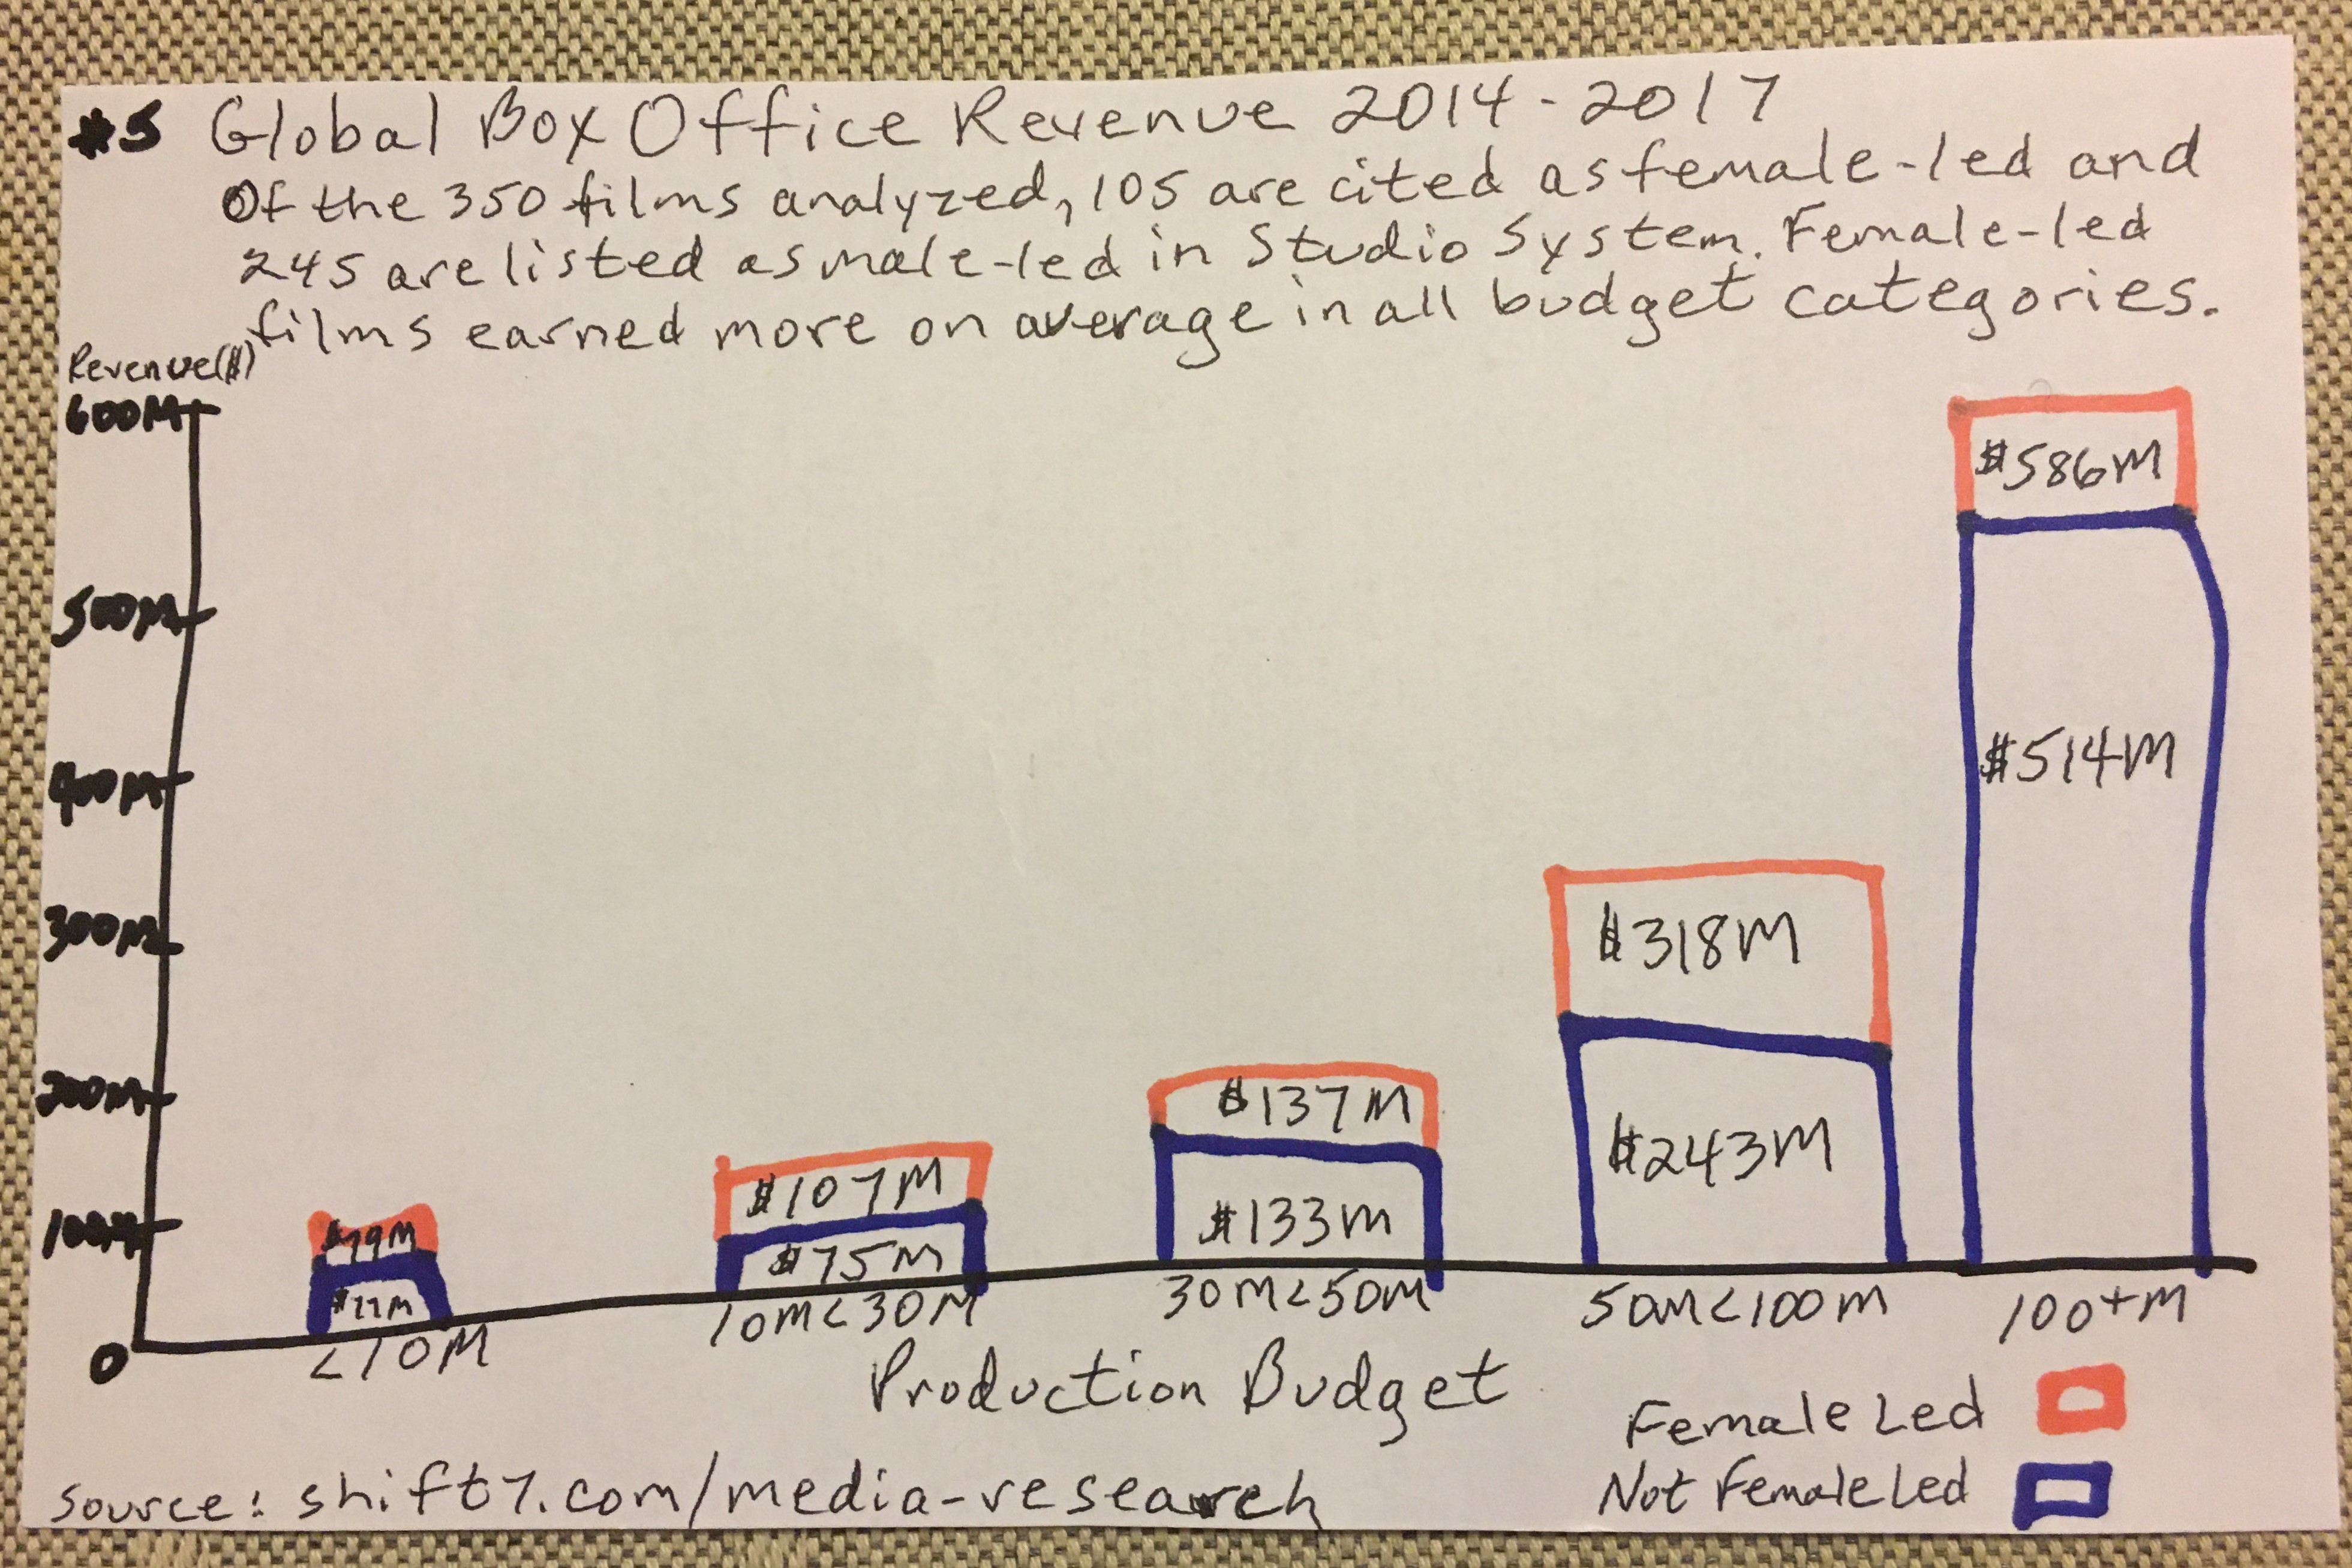 #5 Global Box Office Revenue 2014-2017
Of the 350 films analyzed, 105 are cited as female-led and
245 are listed as male-led in Studio System. Female-led
films earned more on average in all budget categories.
Revenue($)
600M
500M
400M
300M
200M
100M
0
$586M
$514M
$318M
$243M
$137M
$133M
$107M
$75M
<10M
10M<30M
30M<50M
50M<100M
100+M
Production Budget
Female Led
Not Female Led
Source: shift7.com/media-research